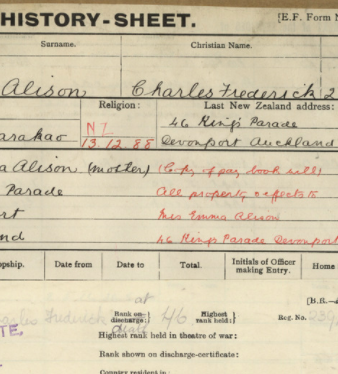 HISTORY-SHEET. [E.F. Form N
Surname. Christian Name.
Alison Charles Frederick 2
Religion: Last New Zealand address:
NZ 46 King's Parade
arakao 13.12.88 Devonport Auckland
a Alison (mother) (Copy of pay book will)
Parade All property & effects to
rt Mrs Emma Alison
nd 46 Kings Parade Devonport
opship. Date from Date to Total. Initials of Officer making Entry. Home
at
Rank on discharge: 46 Highest rank held: [B.R.-
Reg. No. 239
Charles Frederick
Highest rank held in theatre of war:
TE
Rank shown on discharge-certificate:
Country resident in: